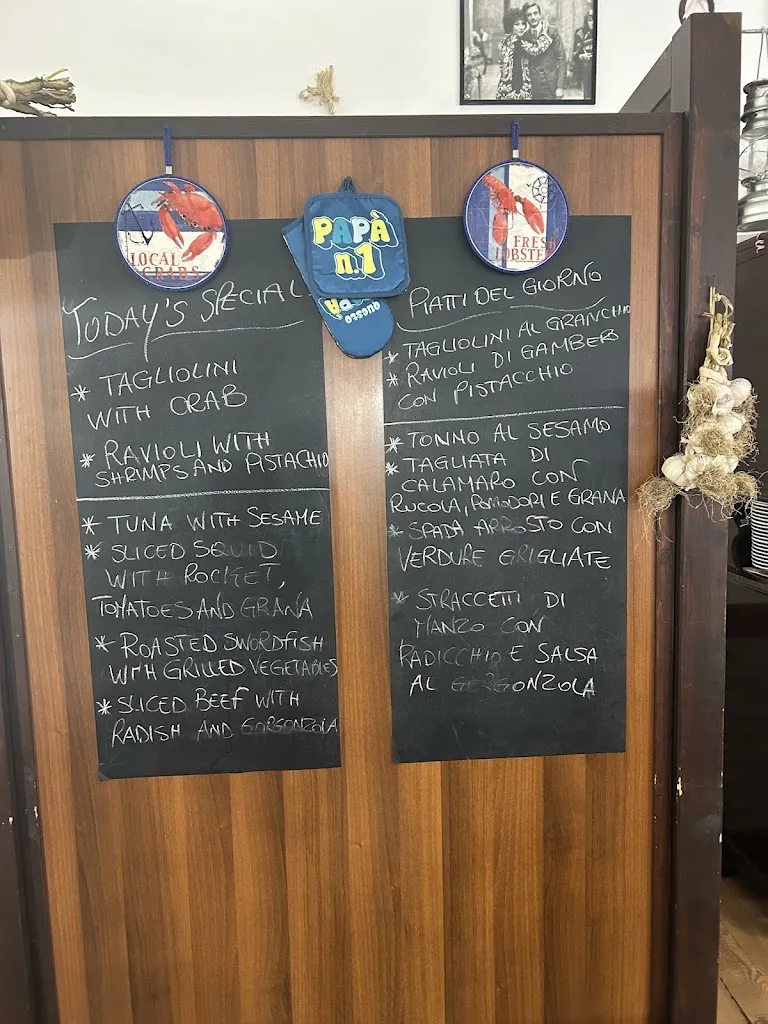 LOCAL
CRABS
PAPÀ
n.1
questo
FRESH
LOBSTER
TODAY'S SPECIAL
* TAGLIOLINI
WITH CRAB
* RAVIOLI WITH
SHRIMPS AND PISTACHIO
* TUNA WITH SESAME
* SLICED SQUID
WITH ROCKET,
TOMATOES AND GRANA
* ROASTED SWORDFISH
WITH GRILLED VEGETABLES
* SLICED BEEF WITH
RADISH AND GORGONZOLA
PIATTI DEL GIORNO
* TAGLIOLINI AL GRANCHIO
* RAVIOLI DI GAMBERO
CON PISTACCHIO
* TONNO AL SESAMO
* TAGLIATA DI
CALAMARO CON
RUCOLA, POMODORI E GRANA
* SPADA ARROSTO CON
VERDURE GRIGLIATE
* STRACCETTI DI
MANZO CON
RADICCHIO E SALSA
AL GORGONZOLA